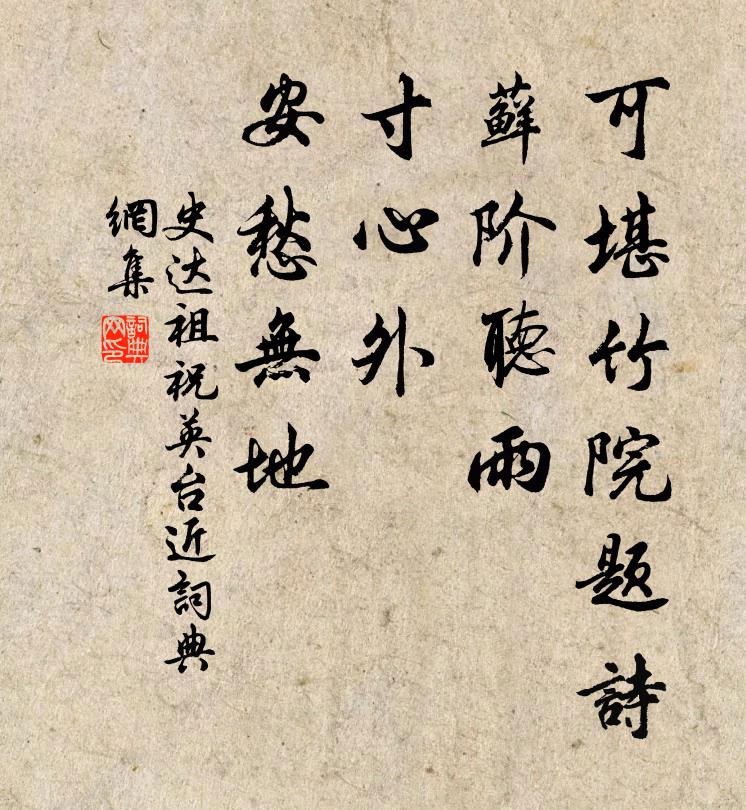 可堪竹院题詩
蘚阶聽雨
寸心外
安愁無地
史达祖祝英台近詞典
網集
詞典
网印